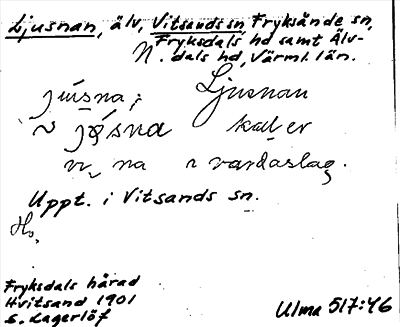 Ljusnan, älv, Vitsands sn, Fryksände sn,
Fryksdals hd samt Älv-
N. dals hd, Värml. län.
júsna; Ljusnan
~ jǫ́sna
na vardaslag.
Uppt. i Vitsands sn.
Hs.
Fryksdals härad
Hvitsand 1901
E. Lagerlöf
Ulma 517:46